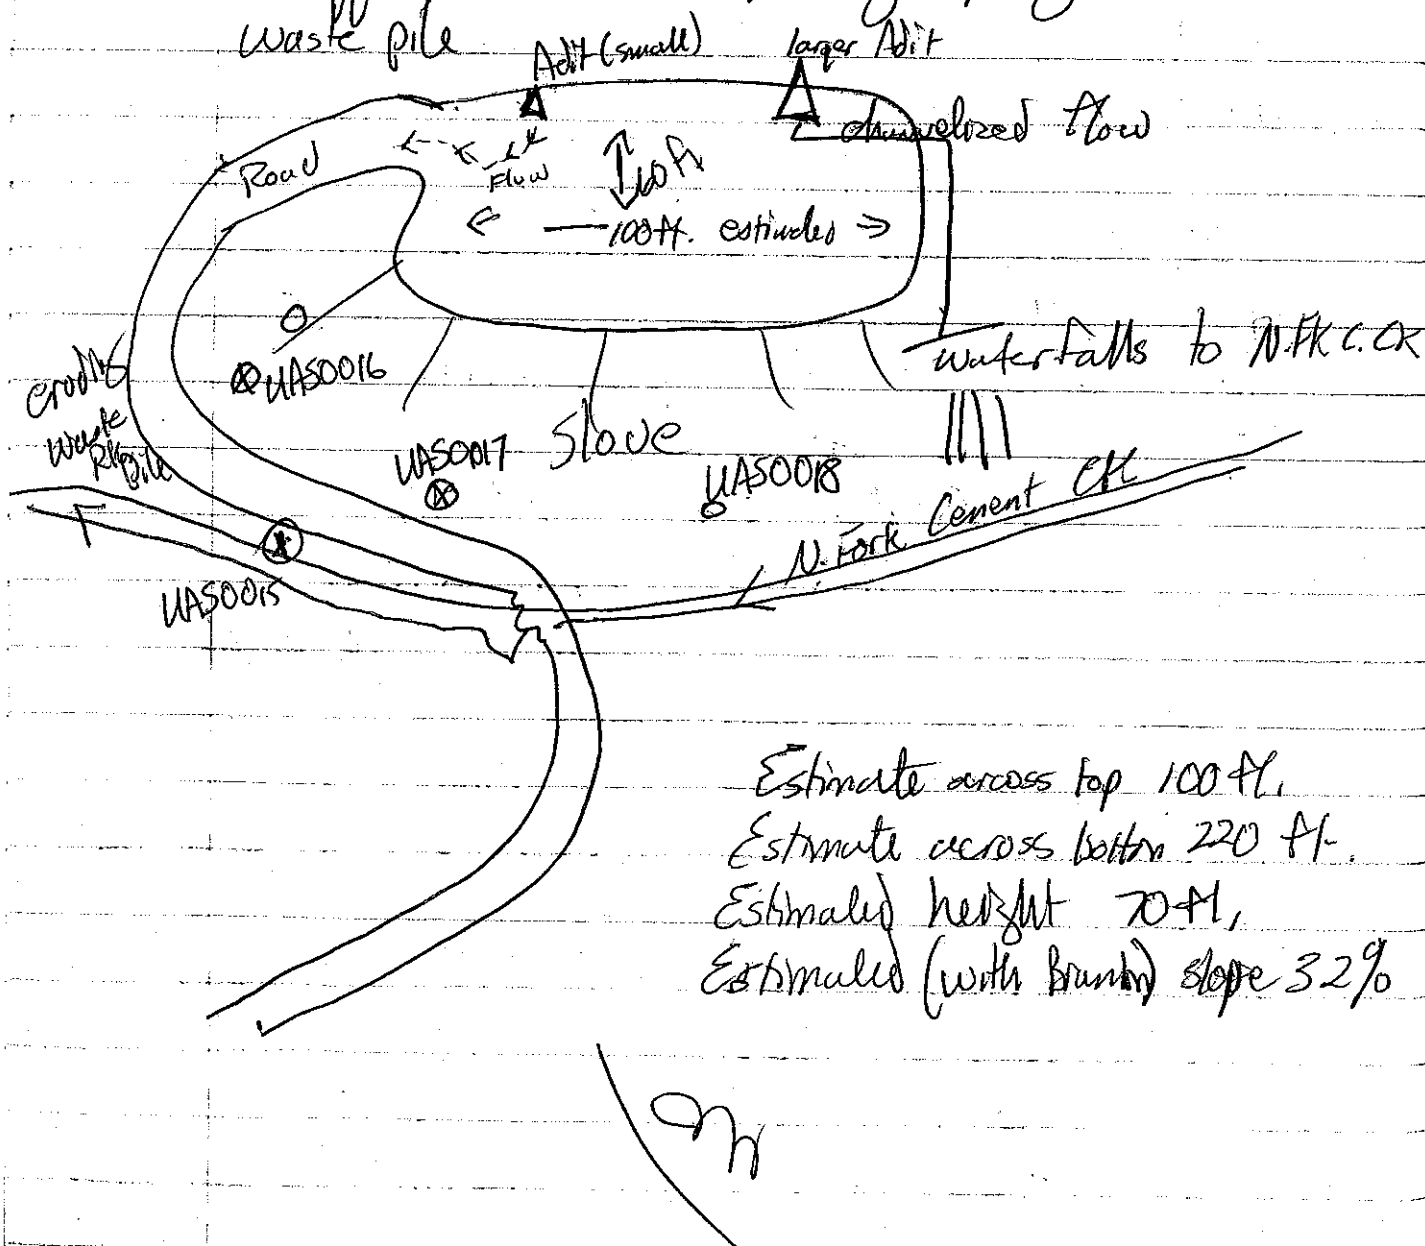 waste pile
Adit (small)
larger Adit
channelized flow
Road
Flow
60 ft
100 ft. estimated
waterfalls to N. FK C. CK
eroding
Waste
Rk Pile
UASO016
UASO017
Slope
UASO018
N. Fork Cement CK
UASO015
Estimate across top 100 ft.
Estimate across bottom 220 ft.
Estimated height 70 ft.
Estimated (with Brunton) slope 32%